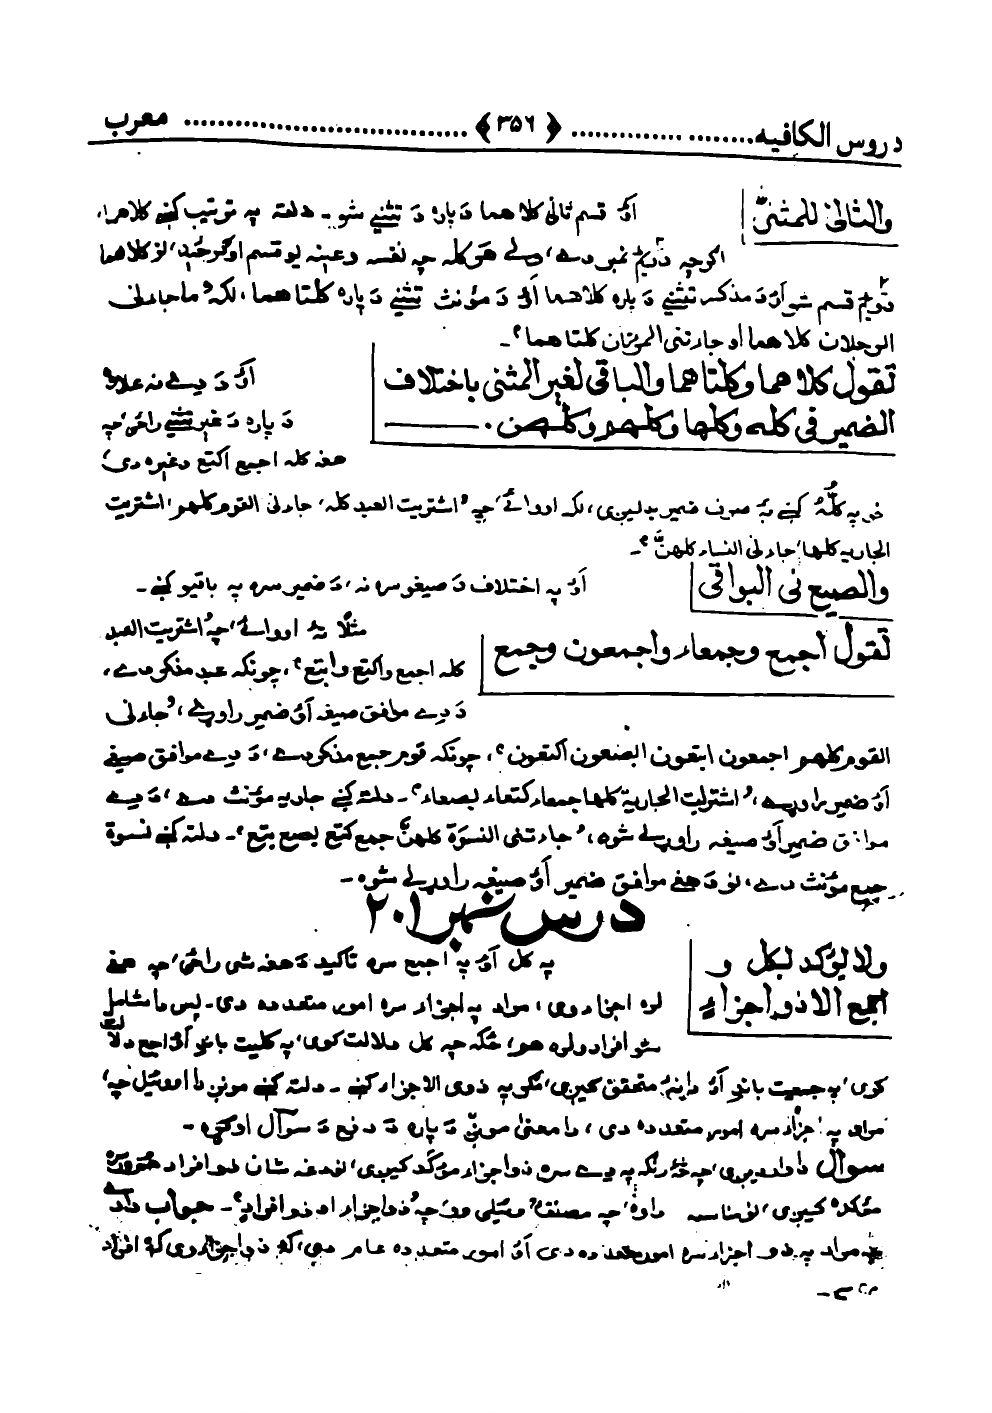 دروس الکافیه ............... ﴿۳۵۶﴾ ............... معرب
والثانی للمثنیٰ
اؤ قسم ثانی کلاهما دَ پاره دَ تثنیے شو۔ دلته په ترتیب کښے کلاهما،
اګرچه دَویم نمبر دے، ولے هرکله چه نفسه وعینه یو قسم اوګرځید، نو کلاهما
دَویم قسم شو اؤ دَ مذکر تثنیے دَ پاره کلاهما اؤ دَ مؤنث تثنیے دَ پاره کلتاهما، لکه ماجاءنی
الرجلان کلاهما أو جاءتنی المرأتان کلتاهما۔
تقول کلاهما وکلتاهما والباقی لغیر المثنی باختلاف
الضمیر فی کله وکلها وکلهم وکلهن۔
اؤ دَ دیے نه علاوه
دَ پاره دَ غیر تثنیے راځی چه
هغه کله اجمع اکتع وغیره دی
خو په کلّهٗ کښے به صرف ضمیر بدلیږی، لکه اووائے چه اشتریت العبد کله، جاءنی القوم کلهم، اشتریت
الجاریه کلها، جاءنی النساء کلهنّ۔
والصیغ فی البواقی
اؤ په اختلاف دَ صیغو سره نه، دَ ضمیر سره په باقیو کښے۔
تقول أجمع وجمعاء وأجمعون وجمع
مثلًا ته اووائے، چه اشتریت العبد
کله اجمع واکتع وابتع، چونکه عبد مذکر دے،
دَ دے موافق صیغه اؤ ضمیر راوړلے، جاءنی
القوم کلهم اجمعون ابتعون ابصعون اکتعون، چونکه قوم جمع مذکر دے، دَ دے موافق صیغے
اؤ ضمیر راوړے، اشتریت الجاریة کلها جمعاء کتعاء بصعاء۔ دلته کښے جاریه مؤنث ده، دَ دے
موافق ضمیر اؤ صیغه راوړلے شوه، جاءتنی النسوة کلهن جمع کتع بصع بتع۔ دلته کښے نسوة
جمع مؤنث دے، نو دَ هغے موافق ضمیر اؤ صیغه راوړلے شوه۔
درس نمبر ۲۰۱
ولا یؤکد بکل و
اجمع الا ذو اجزاء
په کل اؤ په اجمع سره تاکید دَ هغه شی راځی، چه هغه
لره اجزاء وی، مراد په اجزاء سره امور متعدده دی۔ پس دا شامل
شو افرادو لره هم، ځکه چه کل دلالت کوی په کلیت باندِ اؤ اجمع دلالت
کوی په جمعیت باندِ اؤ دا متحقق کیږی مګر په ذوی الاجزاء کښے۔ دلته کښے مونږ دا اووئیل چه
مراد په اجزاء سره امور متعدده دی، دا معنیٰ مونږ دَ پاره دَ دفع دَ سوال اوکړه۔
سوال دا واردیږی چه څرنګه په دے سره ذو اجزاء مؤکد کیږی، نو دغه شان ذو افراد هم ورسره
مؤکد کیږی، نو مناسب دا وه چه مصنف وئیلی وے چه ذو اجزاء او ذو افراد۔ جواب دادے
چه مراد په ذو اجزاء سره امور متعدده دی اؤ امور متعدده عام دی، که ذو اجزاء وی که افراد